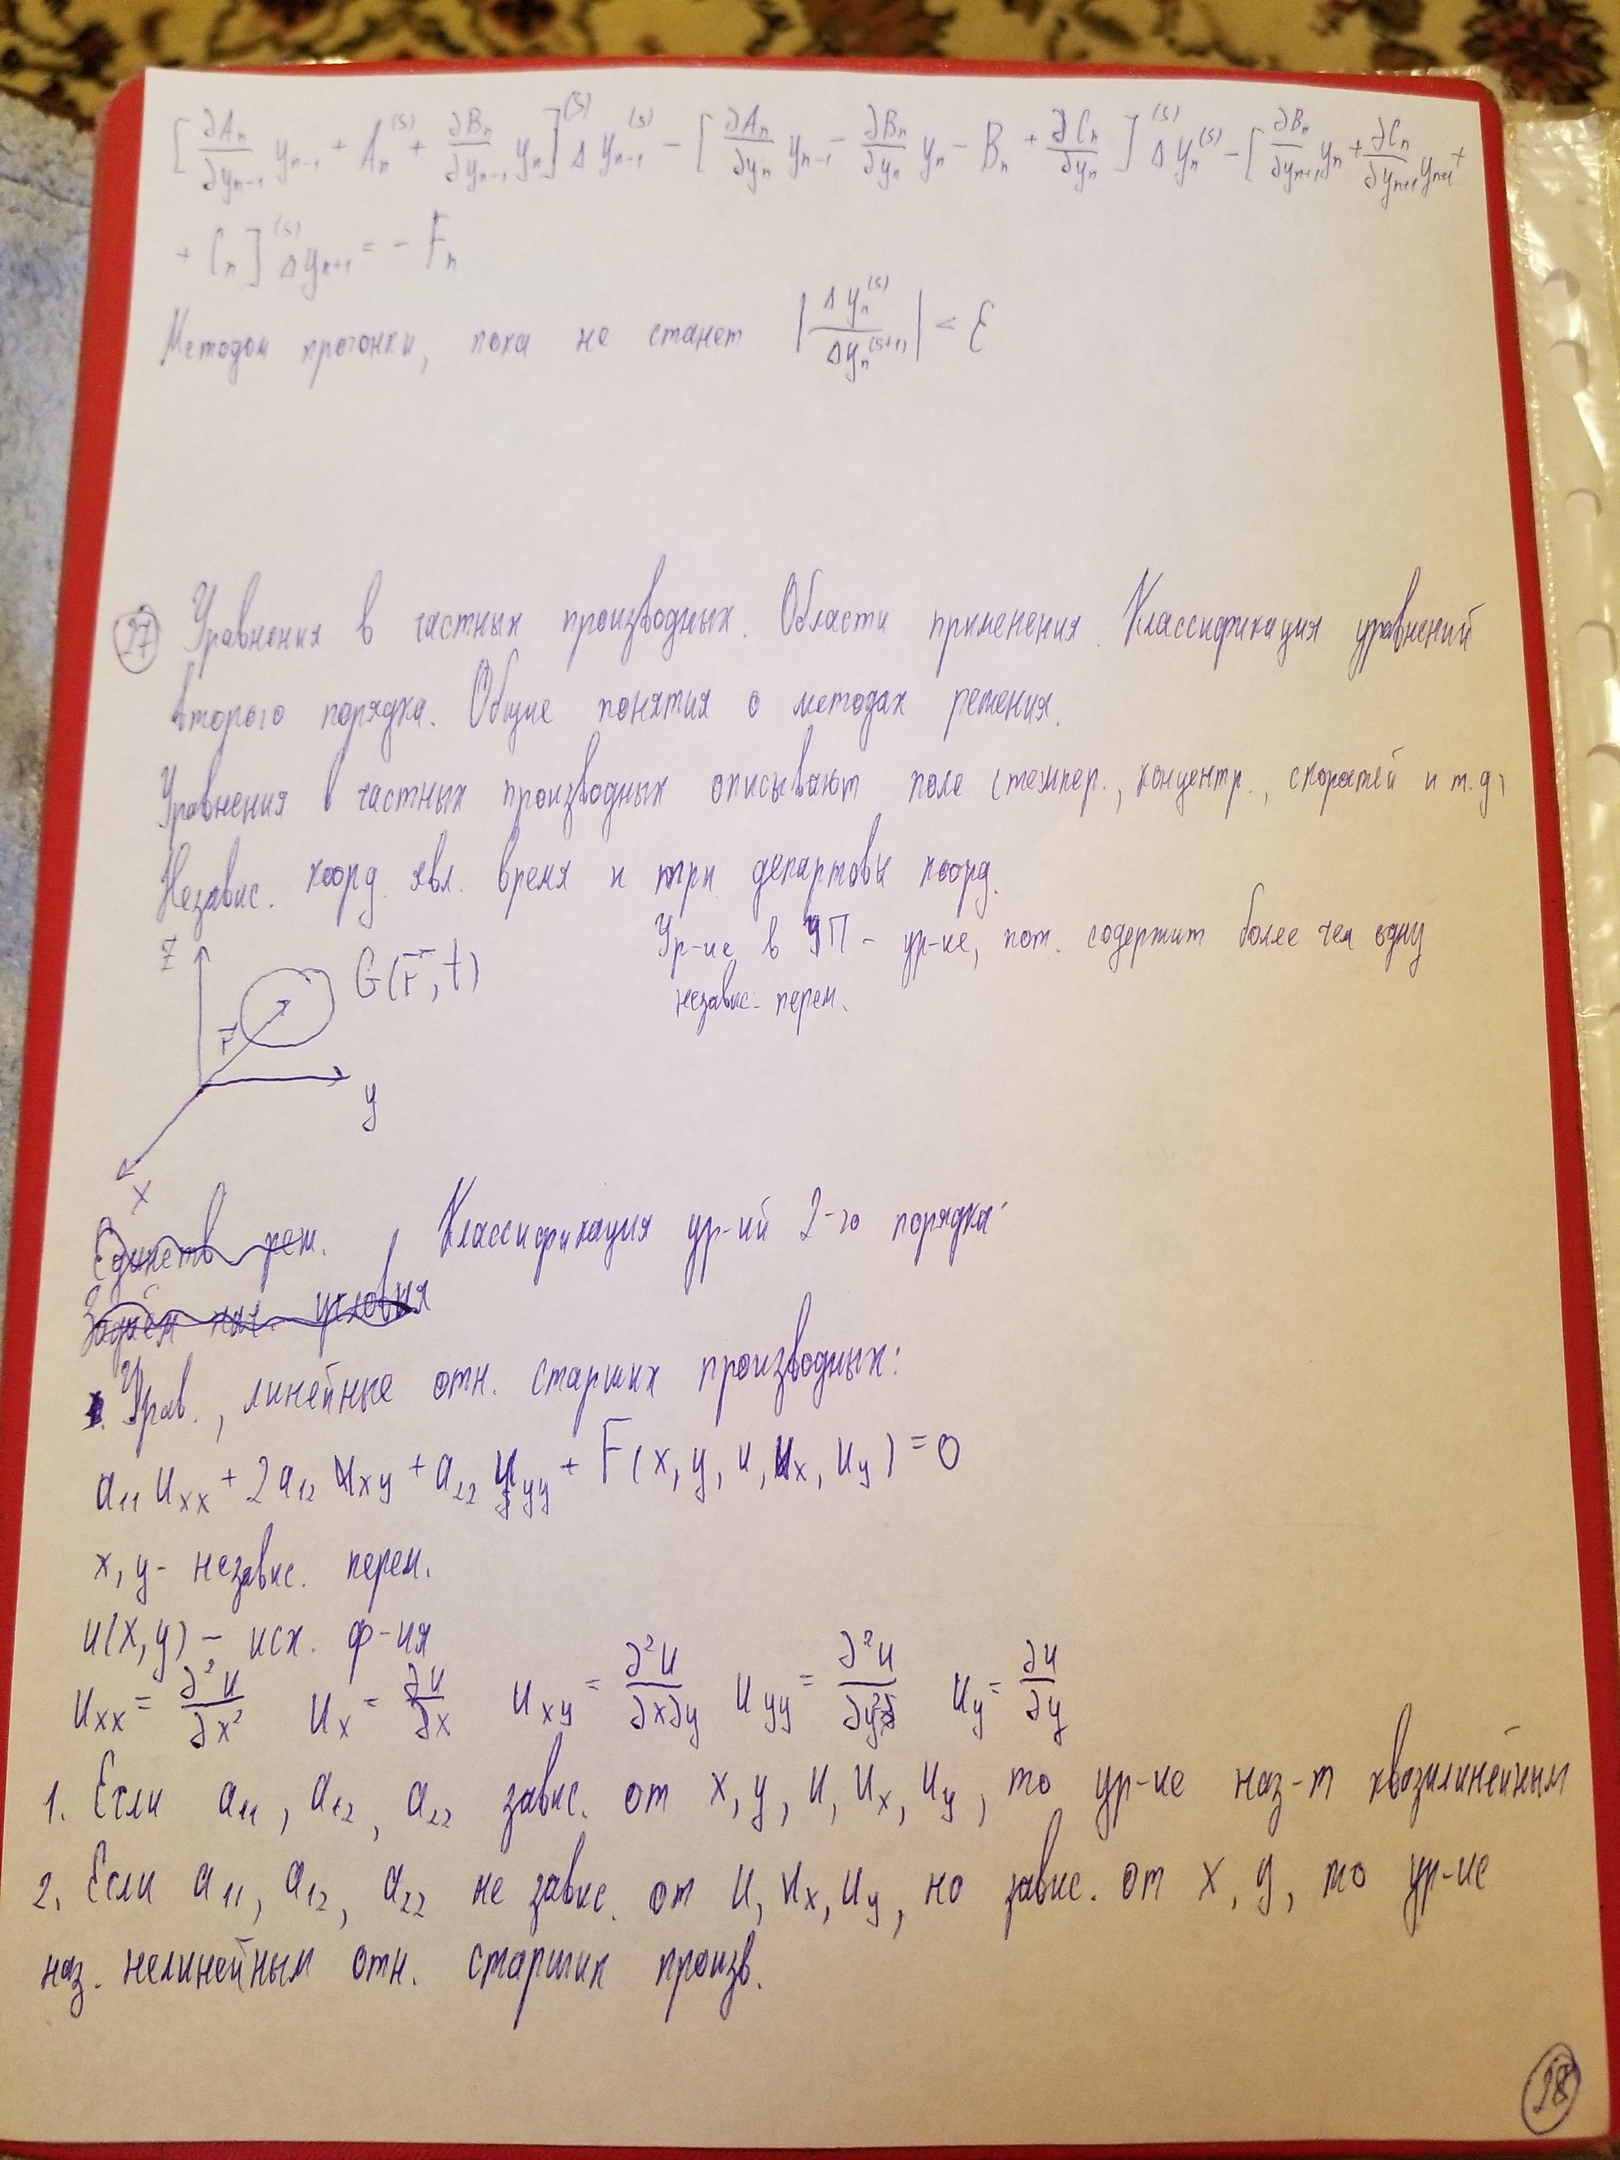 [∂Aₙ/∂yₙ₋₁ yₙ₋₁ + Aₙ⁽ˢ⁾ + ∂Bₙ/∂yₙ₋₁ yₙ]⁽ˢ⁾ Δyₙ₋₁⁽ˢ⁾ − [∂Aₙ/∂yₙ yₙ₋₁ − ∂Bₙ/∂yₙ yₙ − Bₙ + ∂Cₙ/∂yₙ]⁽ˢ⁾ Δyₙ⁽ˢ⁾ − [∂Bₙ/∂yₙ₊₁ yₙ + ∂Cₙ/∂yₙ₊₁ yₙ₊₁ +
+ Cₙ]⁽ˢ⁾ Δyₙ₊₁ = − Fₙ
Методом прогонки, пока не станет |Δyₙ⁽ˢ⁾/Δyₙ⁽ˢ⁺¹⁾| < ε
27 Уравнения в частных производных. Области применения. Классификация уравнений
второго порядка. Общие понятия о методах решения.
Уравнения в частных производных описывают поле (темпер., концентр., скоростей и т.д)
Независ. коорд. явл. время и три декартовы коорд.
Ур-ие в ЧП – ур-ие, кот. содержит более чем одну
независ. перем.
z G(r⃗, t)
r⃗
y
x
Единств реш. Классификация ур-ий 2-го порядка
Задаём нач. условия
Урав., линейные отн. старших производных:
a₁₁ uₓₓ + 2a₁₂ uₓᵧ + a₂₂ uᵧᵧ + F(x, y, u, uₓ, uᵧ) = 0
x, y - независ. перем.
u(x, y) – исх. ф-ия
uₓₓ = ∂²u/∂x² uₓ = ∂u/∂x uₓᵧ = ∂²u/∂x∂y uᵧᵧ = ∂²u/∂y² uᵧ = ∂u/∂y
1. Если a₁₁, a₁₂, a₂₂ завис. от x, y, u, uₓ, uᵧ, то ур-ие наз-т квазилинейным
2. Если a₁₁, a₁₂, a₂₂ не завис. от u, uₓ, uᵧ, но завис. от x, y, то ур-ие
наз. нелинейным отн. старших произв.